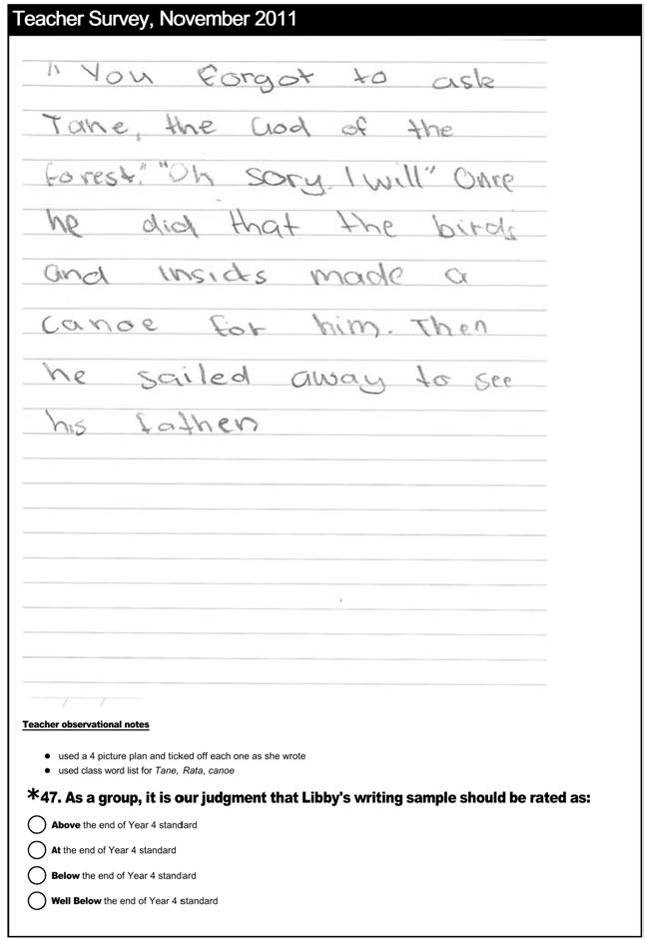 Teacher Survey, November 2011
"You forgot to ask
Tane, the God of the
forest." "Oh sory. I will" Once
he did that the birds
and insicts made a
canoe for him. Then
he sailed away to see
his father
Teacher observational notes
• used a 4 picture plan and ticked off each one as she wrote
• used class word list for Tane, Rata, canoe
*47. As a group, it is our judgment that Libby's writing sample should be rated as:
Above the end of Year 4 standard
At the end of Year 4 standard
Below the end of Year 4 standard
Well Below the end of Year 4 standard